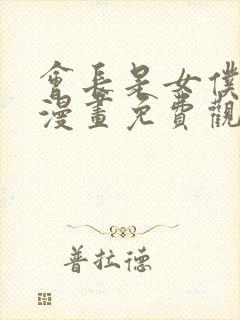 會長是女僕
漫畫免費觀
普拉德